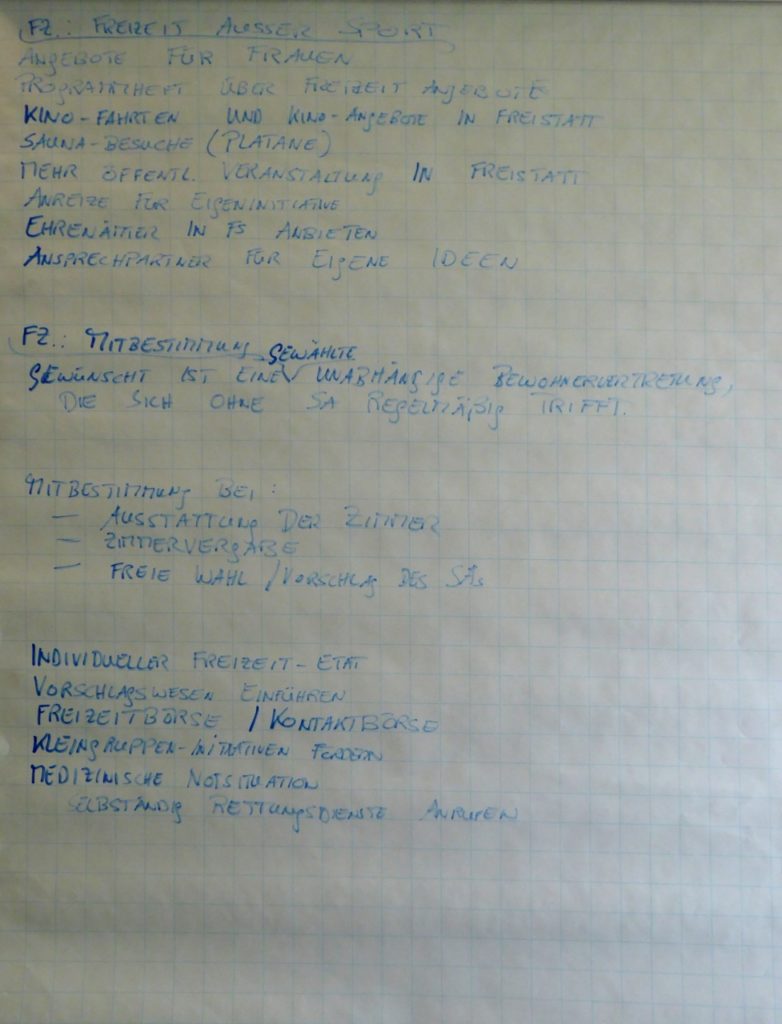 FZ.: FREIZEIT AUSSER SPORT
ANGEBOTE FÜR FRAUEN
PROGRAMMHEFT ÜBER FREIZEIT ANGEBOTE
KINO-FAHRTEN UND KINO-ANGEBOTE IN FREISTATT
SAUNA-BESUCHE (PLATANE)
MEHR ÖFFENTL. VERANSTALTUNG IN FREISTATT
ANREIZE FÜR EIGENINITIATIVE
EHRENÄMTER IN FS ANBIETEN
ANSPRECHPARTNER FÜR EIGENE IDEEN
FZ.: MITBESTIMMUNG
GEWÄHLTE
GEWÜNSCHT IST EINE UNABHÄNGIGE BEWOHNERVERTRETUNG,
DIE SICH OHNE SA REGELMÄßIG TRIFFT.
MITBESTIMMUNG BEI:
— AUSSTATTUNG DER ZIMMER
— ZIMMERVERGABE
— FREIE WAHL / VORSCHLAG DES SAs
INDIVIDUELLER FREIZEIT-ETAT
VORSCHLAGSWESEN EINFÜHREN
FREIZEITBÖRSE / KONTAKTBÖRSE
KLEINGRUPPEN-INITIATIVEN FÖRDERN
MEDIZINISCHE NOTSITUATION
SELBSTÄNDIG RETTUNGSDIENSTE ANRUFEN